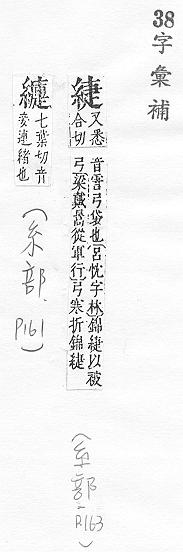 38字彙補
緁 又悉合切 音霅弓袋也呂忱字林錦緁以被弓梁戴暠從軍行弓寒折錦緁
(糸部.P163)
七葉切音妾連緝也
(糸部.P161)